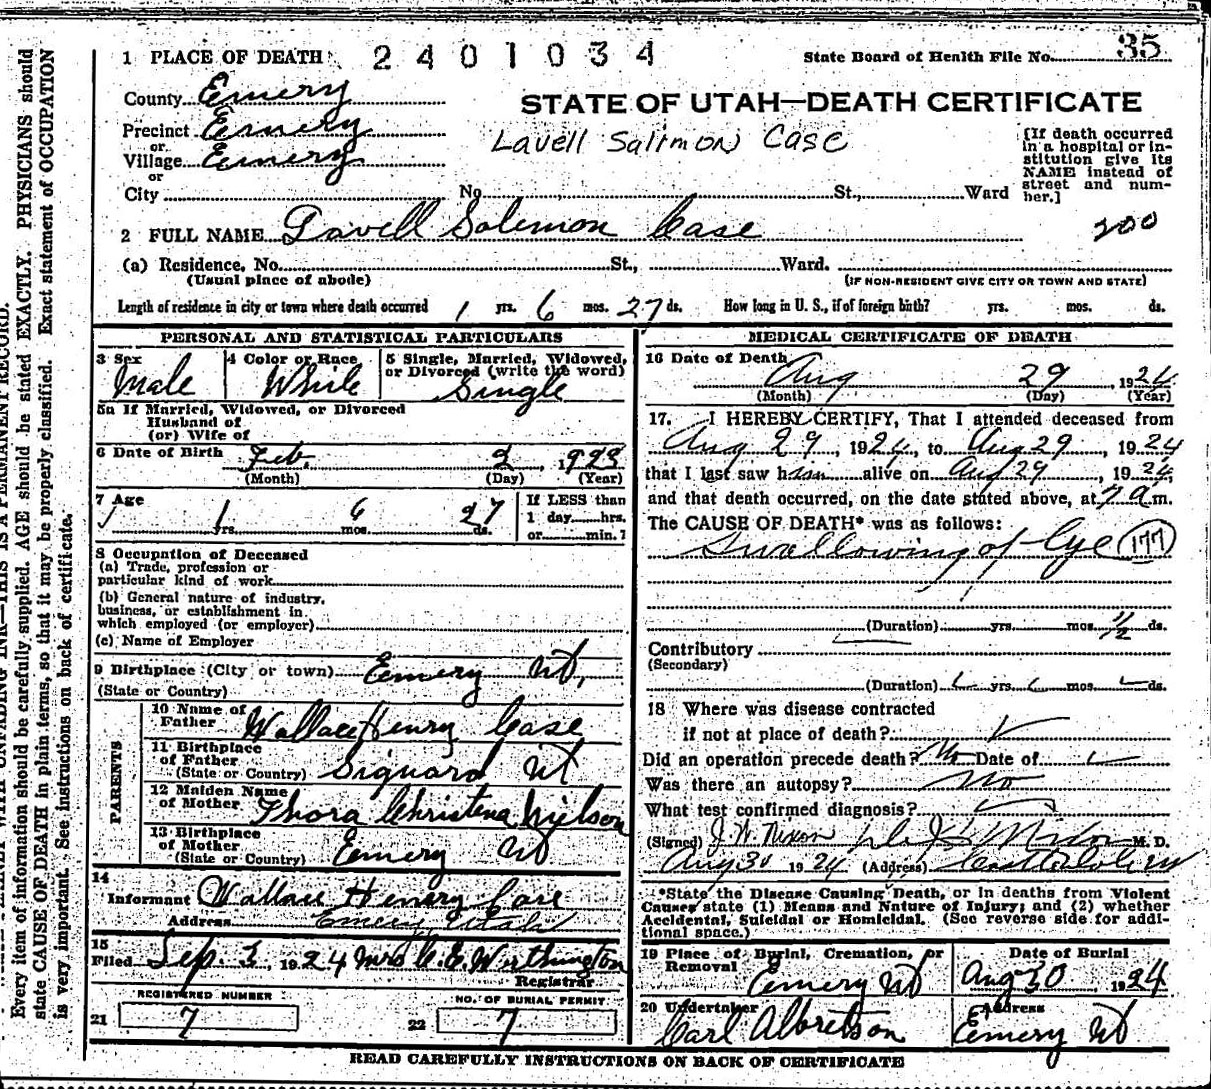 1 PLACE OF DEATH 2401034 State Board of Health File No. 35
County Emery
STATE OF UTAH—DEATH CERTIFICATE
Precinct Emery
or
Village Emery
or
Lavell Salimon Case
[If death occurred
in a hospital or in-
stitution give its
NAME instead of
street and num-
ber.]
City No. St., Ward
200
2 FULL NAME Lavell Solemon Case
(a) Residence, No. St., Ward.
(Usual place of abode) (IF NON-RESIDENT GIVE CITY OR TOWN AND STATE)
Length of residence in city or town where death occurred 1 yrs. 6 mos. 27 ds. How long in U. S., if of foreign birth? yrs. mos. ds.
PERSONAL AND STATISTICAL PARTICULARS
3 Sex 4 Color or Race 5 Single, Married, Widowed,
or Divorced (write the word)
Male White Single
5a If Married, Widowed, or Divorced
Husband of
(or) Wife of
6 Date of Birth Feb. 2, 1923
(Month) (Day) (Year)
7 Age 1 yrs. 6 mos. 27 ds.
If LESS than
1 day hrs.
or min.?
8 Occupation of Deceased
(a) Trade, profession or
particular kind of work
(b) General nature of industry,
business, or establishment in
which employed (or employer)
(c) Name of Employer
9 Birthplace (City or town) Emery Ut,
(State or Country)
PARENTS
10 Name of
Father Wallace Henry Case
11 Birthplace
of Father
(State or Country) Siguard Ut
12 Maiden Name
of Mother Thora Christena Nielson
13 Birthplace
of Mother
(State or Country) Emery Ut
14
Informant Wallace Henry Case
Address Emery Utah
15
Filed Sep. 3, 1924 Mrs C. E. Worthington
Registrar
REGISTERED NUMBER NO. OF BURIAL PERMIT
21 7 22 7
MEDICAL CERTIFICATE OF DEATH
16 Date of Death Aug 29, 1924
(Month) (Day) (Year)
17. I HEREBY CERTIFY, That I attended deceased from
Aug 29, 1924, to Aug 29, 1924
that I last saw him alive on Aug 29, 1924,
and that death occurred, on the date stated above, at 7 a m.
The CAUSE OF DEATH* was as follows:
Swallowing of Lye 177
(Duration) yrs. mos. 1/2 ds.
Contributory
(Secondary)
(Duration) yrs. mos. ds.
18 Where was disease contracted
if not at place of death?
Did an operation precede death? No Date of
Was there an autopsy? no
What test confirmed diagnosis?
(Signed) J. W. Nixon M. D.
Aug 30 1924 (Address)
*State the Disease Causing Death, or in deaths from Violent
Causes state (1) Means and Nature of Injury; and (2) whether
Accidental, Suicidal or Homicidal. (See reverse side for addi-
tional space.)
19 Place of Burial, Cremation, or
Removal Date of Burial
Emery Ut Aug 30, 1924
20 Undertaker Address
Carl Albretson Emery Ut
READ CAREFULLY INSTRUCTIONS ON BACK OF CERTIFICATE
Every item of information should be carefully supplied. AGE should be stated EXACTLY. PHYSICIANS should
state CAUSE OF DEATH in plain terms, so that it may be properly classified. Exact statement of OCCUPATION
is very important. See instructions on back of certificate.